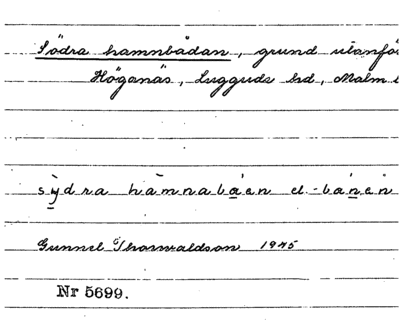 Södra hamnbådan, grund utanfö
Höganäs, Luggude hd, Malm
sydra hamnabåen el. -bånen
Gunnel Thorwaldson 1945
Nr 5699.